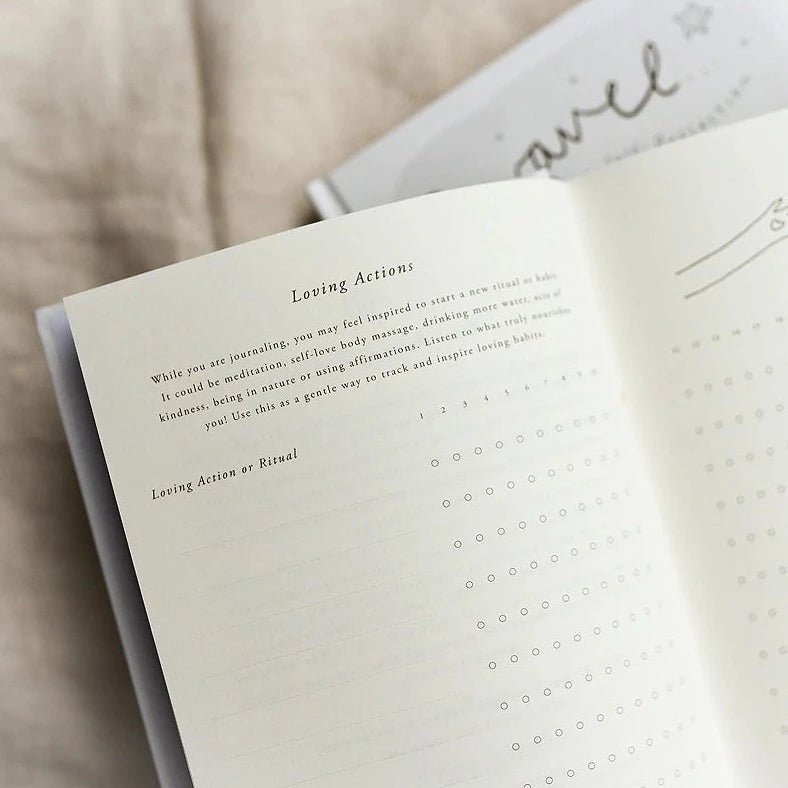 Loving Actions
While you are journaling, you may feel inspired to start a new ritual or habit.
It could be meditation, self-love body massage, drinking more water, acts of
kindness, being in nature or using affirmations. Listen to what truly nourishes
you! Use this as a gentle way to track and inspire loving habits.
1 2 3 4 5 6 7 8 9 10
Loving Action or Ritual